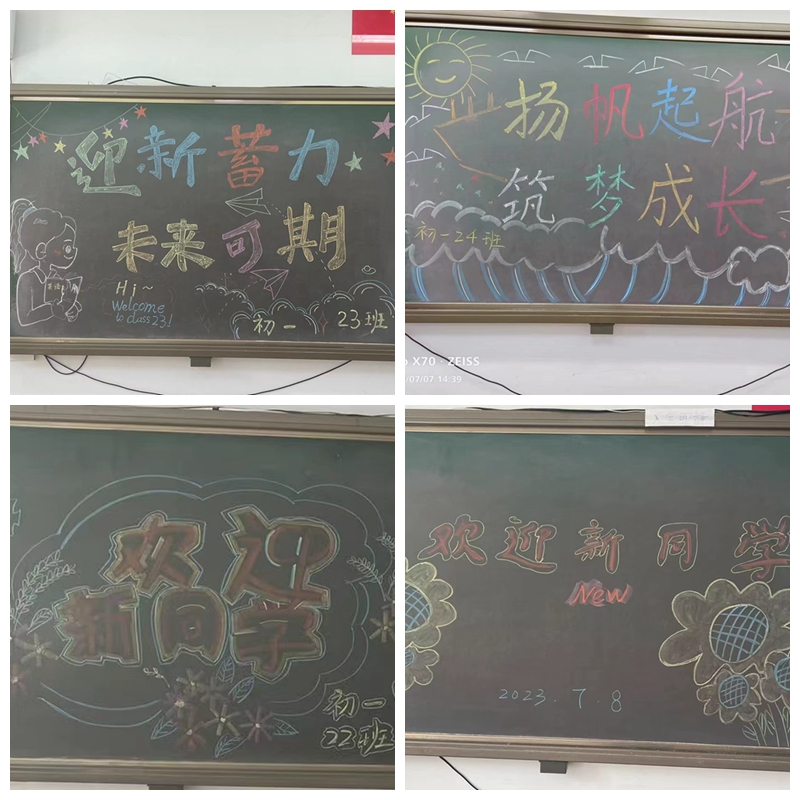 迎新蓄力
未来可期
Hi~
Welcome
to class23!
初一 23班
扬帆起航
筑梦成长
初一24班
X70 · ZEISS
/07/07 14:39
欢迎
新同学
初一
22班
欢迎新同学
New
2023.7.8